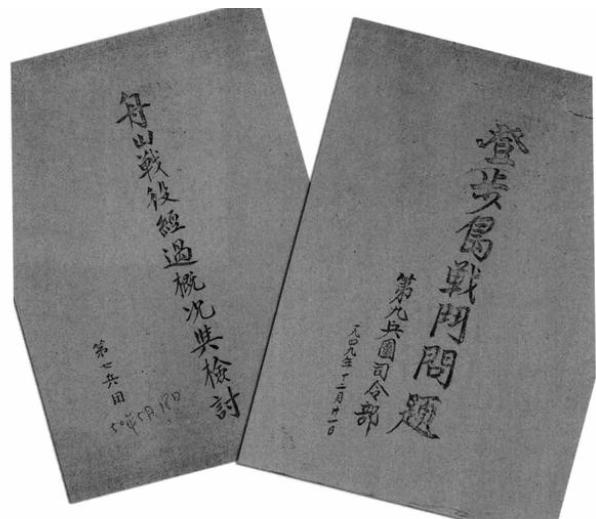 舟山戰役經過概况與檢討
第七兵团
50年5月18日
登步島戰鬥問題
第九兵團司令部
一九四九年十二月廿一日